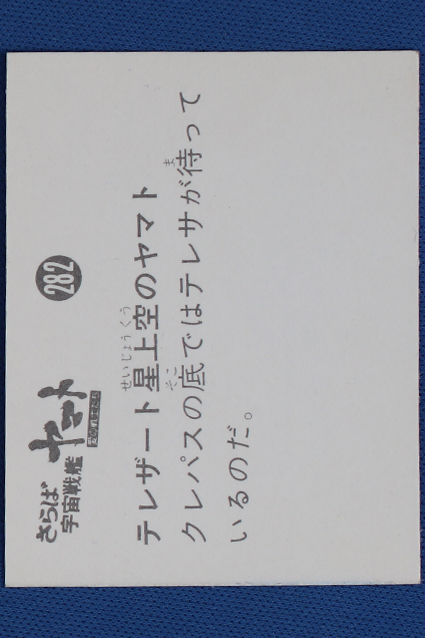 さらば
宇宙戦艦
ヤマト
愛の戦士たち
282
せいじょうくう
テレザート星上空のヤマト
そこ ま
クレパスの底ではテレサが待って
いるのだ。